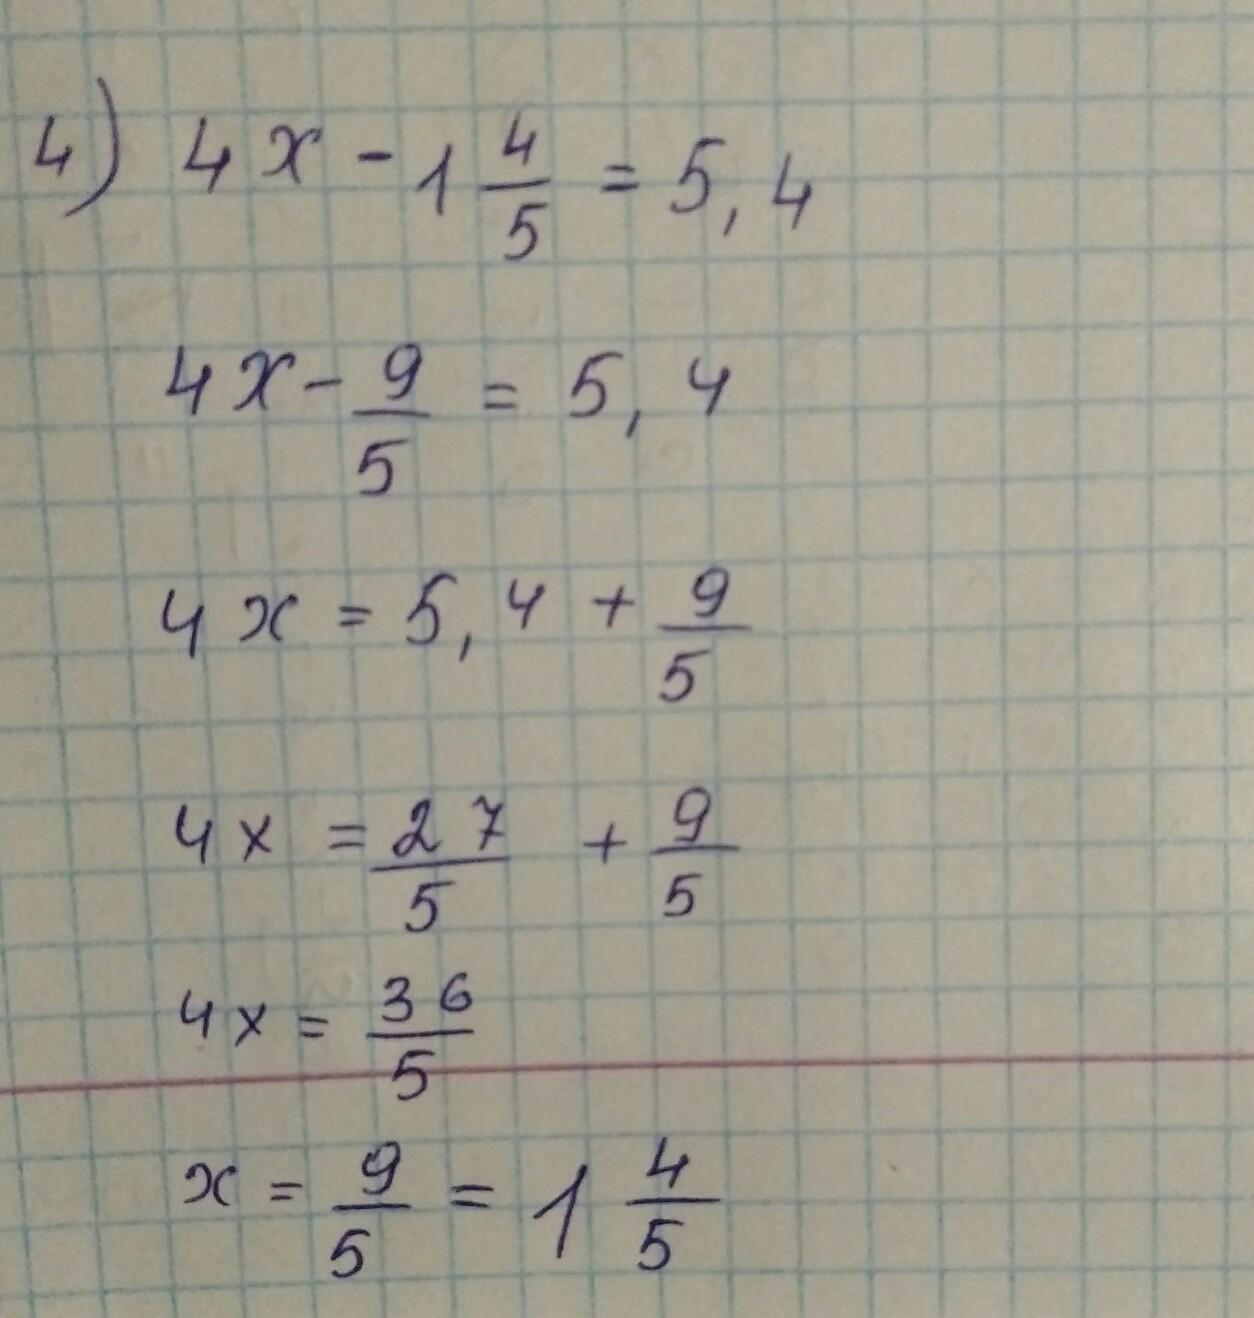 4) 4x - 1 4/5 = 5,4
4x - 9/5 = 5,4
4x = 5,4 + 9/5
4x = 27/5 + 9/5
4x = 36/5
x = 9/5 = 1 4/5